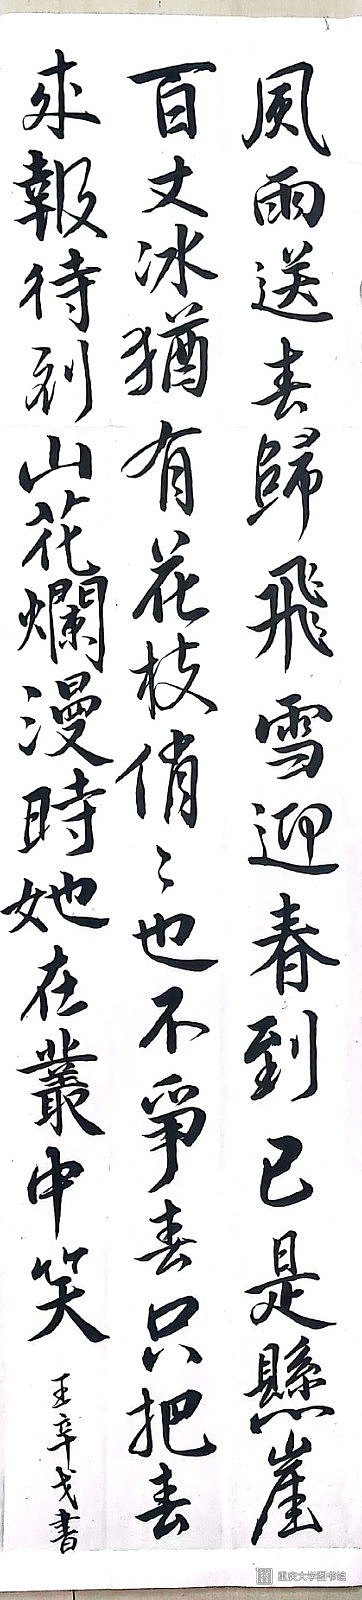 風雨送春歸飛雪迎春到已是懸崖
百丈冰猶有花枝俏〻也不爭春只把春
來報待到山花爛漫時她在叢中笑
王辛戈書
重庆大学图书馆